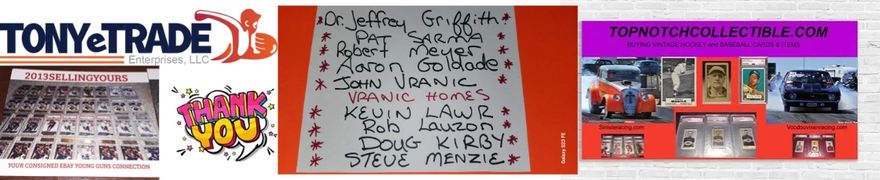 TONYeTRADE
Enterprises, LLC
2013SELLINGYOURS
YOUR CONSIGNED EBAY YOUNG GUNS CONNECTION
THANK
YOU
Dr. Jeffrey Griffith!
* PAT SARMA *
* Robert Meyer *
* Aaron Goldade *
* JOHN VRANIC *
VRANIC HOMES
* KEVIN LAWR *
* Rob Lauzon *
* DOUG KIRBY *
* STEVE MENZIE *
Galaxy S23 FE
TOPNOTCHCOLLECTIBLE.COM
BUYING VINTAGE HOCKEY and BASEBALL CARDS & ITEMS
Sinisterracing.com
Voodoovixenracing.com